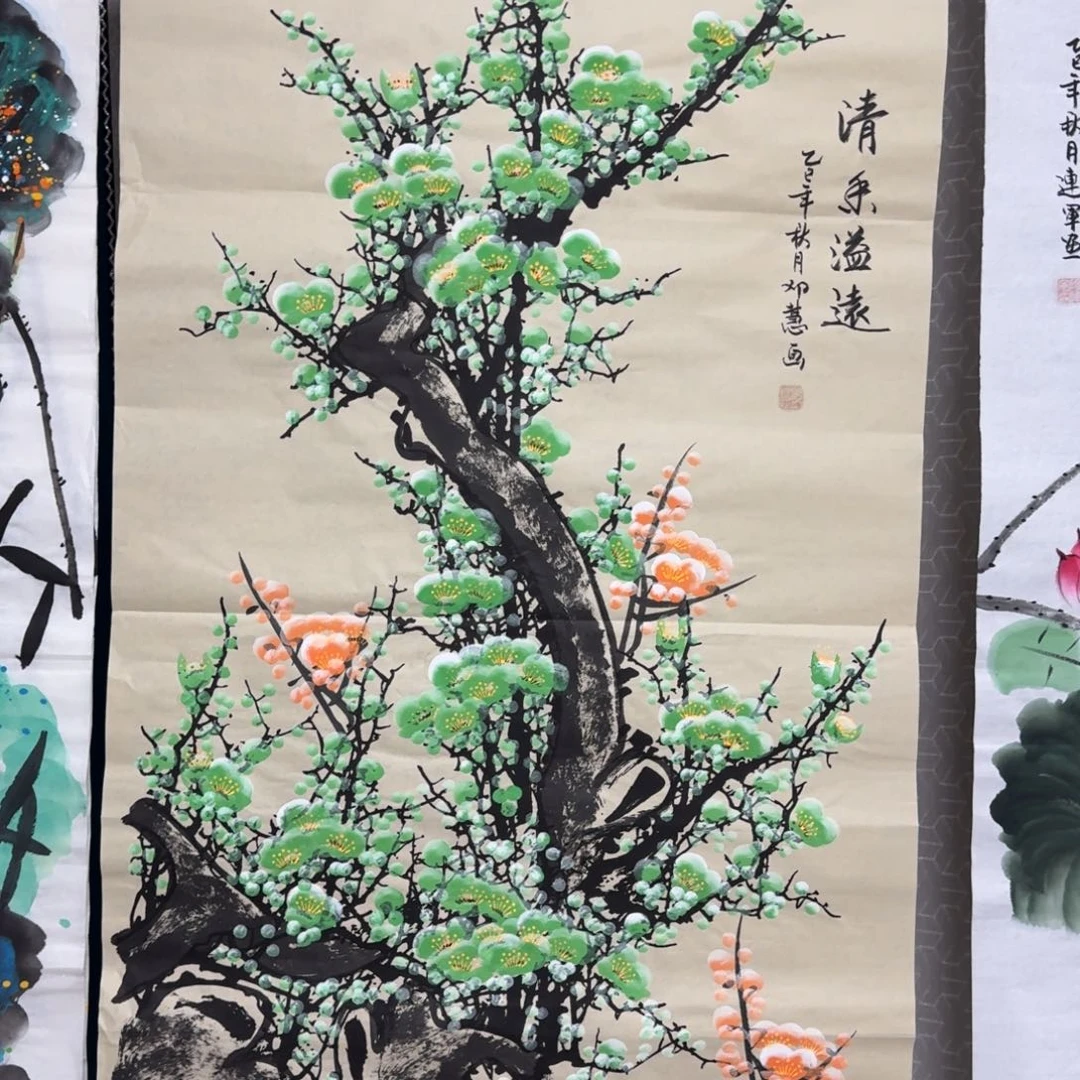 清香溢遠
乙巳年秋月邓慧画
乙酉年秋月連軍画